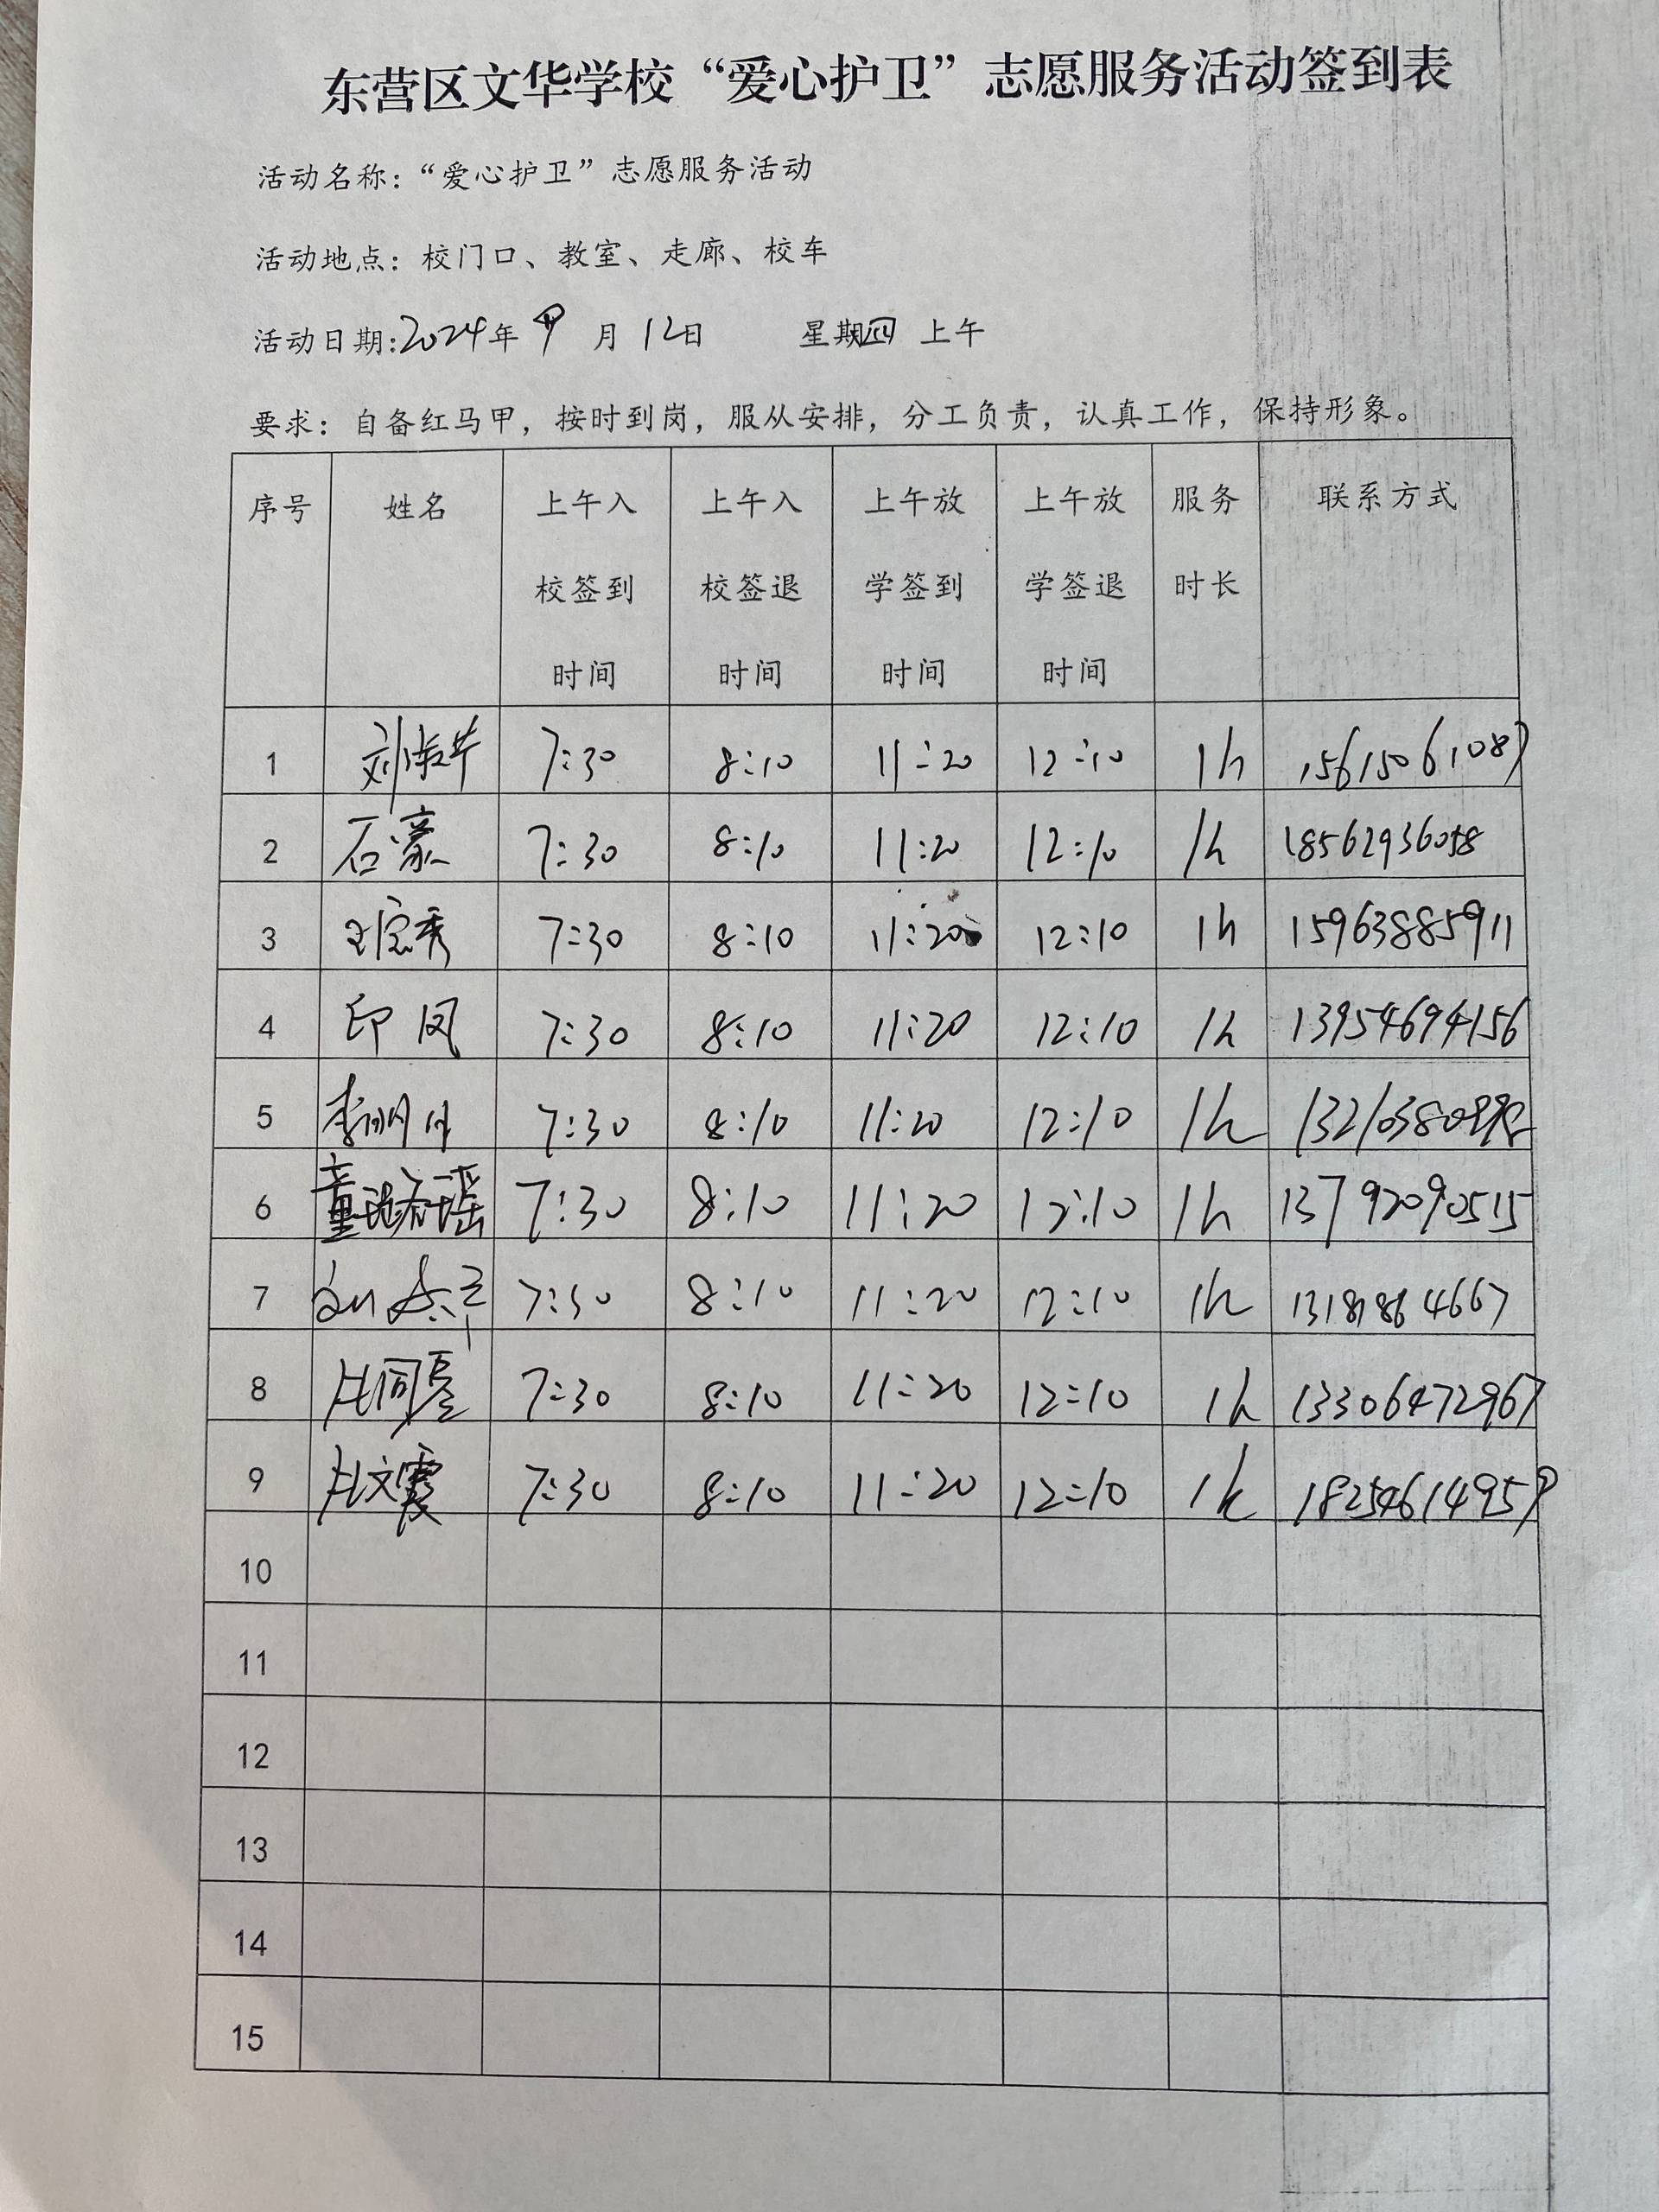 东营区文华学校“爱心护卫”志愿服务活动签到表
活动名称：“爱心护卫”志愿服务活动
活动地点：校门口、教室、走廊、校车
活动日期:2024年 9 月 12日 星期四 上午
要求：自备红马甲，按时到岗，服从安排，分工负责，认真工作，保持形象。
序号 姓名 上午入校签到时间 上午入校签退时间 上午放学签到时间 上午放学签退时间 服务时长 联系方式
1 7:30 8:10 11:20 12:10 1h 15615061087
2 石豪 7:30 8:10 11:20 12:10 1h 18562936058
3 7:30 8:10 11:20 12:10 1h 15963885911
4 印凤 7:30 8:10 11:20 12:10 1h 13954694156
5 李明月 7:30 8:10 11:20 12:10 1h
6 7:30 8:10 11:20 12:10 1h 13792090515
7 7:30 8:10 11:20 12:10 1h
8 7:30 8:10 11:20 12:10 1h 13306472967
9 杜文霞 7:30 8:10 11:20 12:10 1h 18254614959
10
11
12
13
14
15